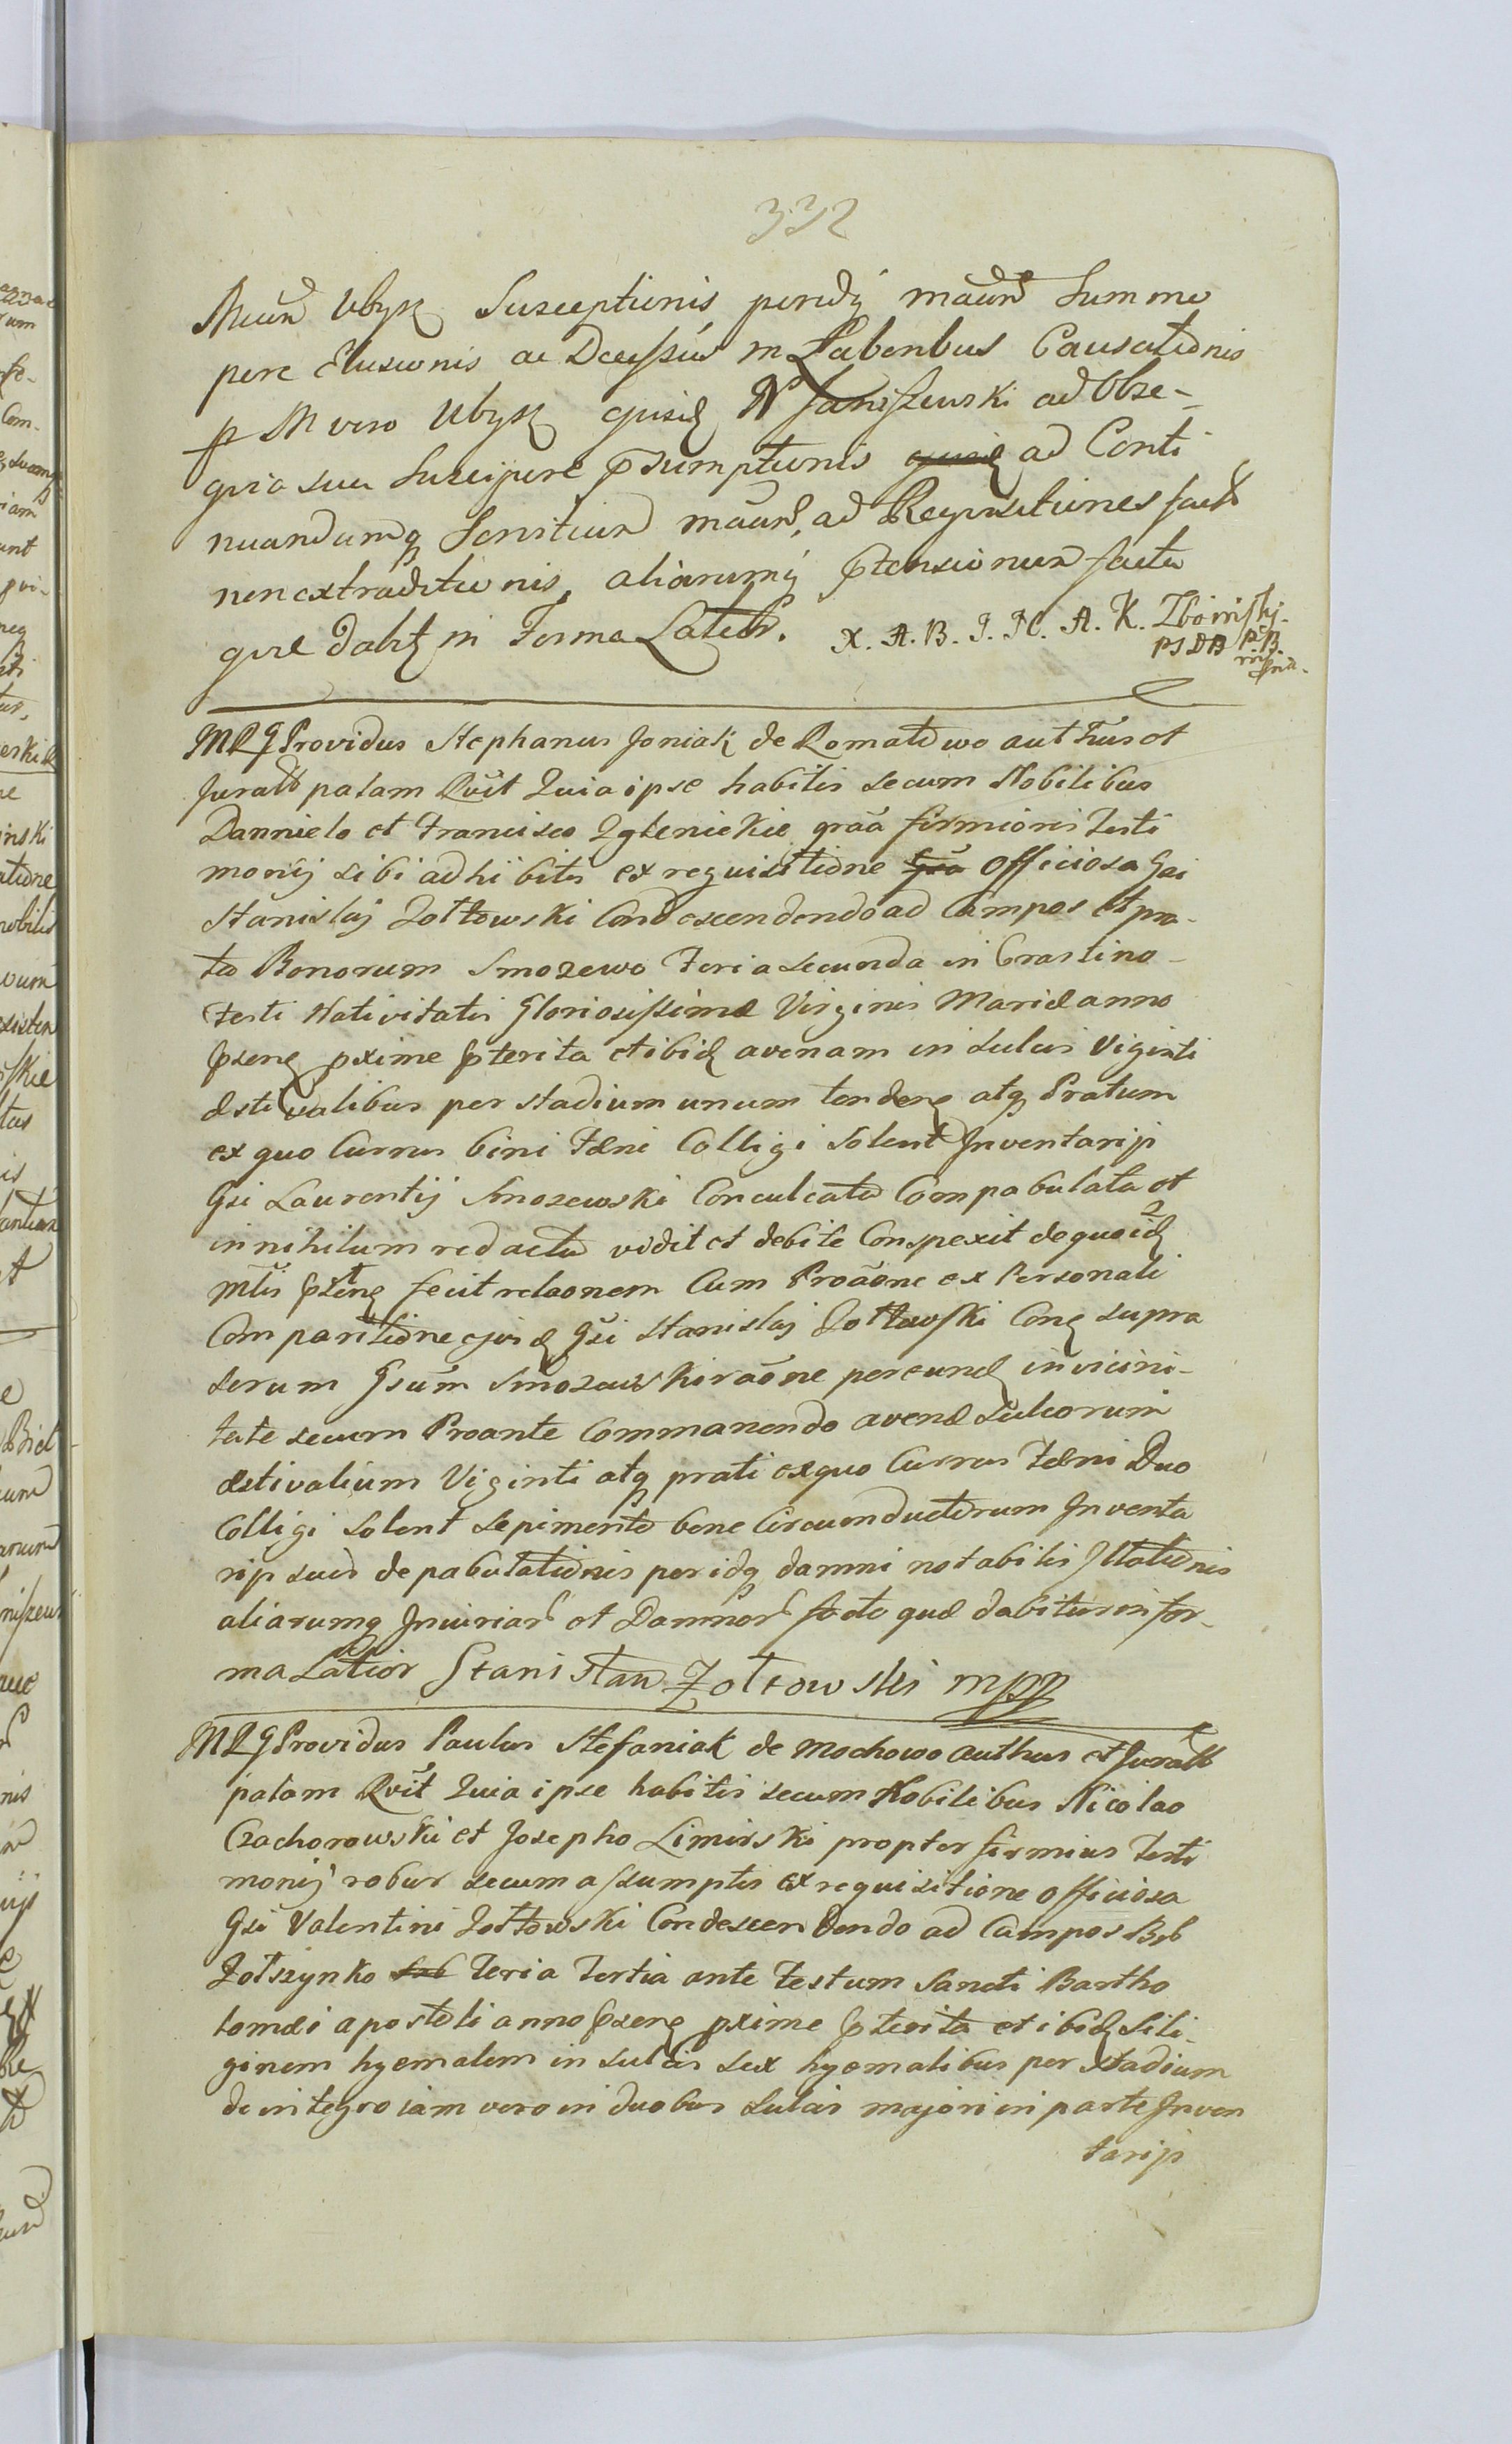 332
Ubysz Susceptionis peridq summo
pere Elusionis ac in Labenbus Causationis
M vero Ubysz ejusd N Janiszewski ad Obse-
quia sua Suscipere psumptionis ejusd ad Conti
nuandumq Servitium ad Requisitiones fact
non extraditionis, aliarumq ptensionum facta
quæ dabit in Forma Latiori. X. A. B. J. K. A. K. Zboinski
PSDB
MRG Providus Stephanus Joniak de Romatowo auth Fuus et
Juratt palam Rvit Quia ipse habitis secum Nobilibus
Dannielo et Francisco Zglenickie grãa firmioris Testi
monij sibi adhibitis ex requisitione officiosa Gsi
Stanislaj Zołtowski Condescendendo ad Campos et pra-
ta Bonorum Smosewo Feria secunda in Crastino
Festi Nativitatis Gloriosissimæ Virginis Mariæ anno
pseng pxime pterita et ibid avenam in sulcis Viginti
æstivalibus per stadium unum tendeng atq Pratum
ex quo Currus bini Fæni Colligi Solent Inventarij
Gsi Laurentij Smosewski Conculcata Compabulata et
in nihilum redacta vidit et debite Conspexit de quo id
Mtis pseng fecit relaonem Cum Proãone ex Personali
Comparitione ejusd Gsi Stanislaj Zołtowski Cong supra
serum Gsum Smosewski raõne percund in vicini-
tate secum Proante Commanendo avenæ Sulcorum
æstivalium Viginti atq prati ex quo Currus Fæni Duo
Colligi solent Sepimento bene Circumductorum Inventa
rij sui depabulationis peridq damni notabilis Illationis
aliarumq Iniuriar et Damnor facto quæ dabitur in for-
ma Latior Stanisław Zołtowski mpp
MRG Providus Paulus Stefaniak de Mochowo authus et Juratt
palam Rvit Quia ipse habitis secum Nobilibus Nicolao
Czachorowski et Josepho Limirski propter firmius Testi
monij robur secum assumptis ex requisitione officiosa
Gsi Valentini Zołtowski Condescendendo ad Campos Bb
Zołszynko Feria Tertia ante Festum Sancti Bartho
lomæi apostoli anno pseng pxime pterita et ibid Sili-
ginem hyemalem in sulcis sex hyemalibus per stadium
de integro iam vero in duobus Sulcis majori in parte Inven
tarij